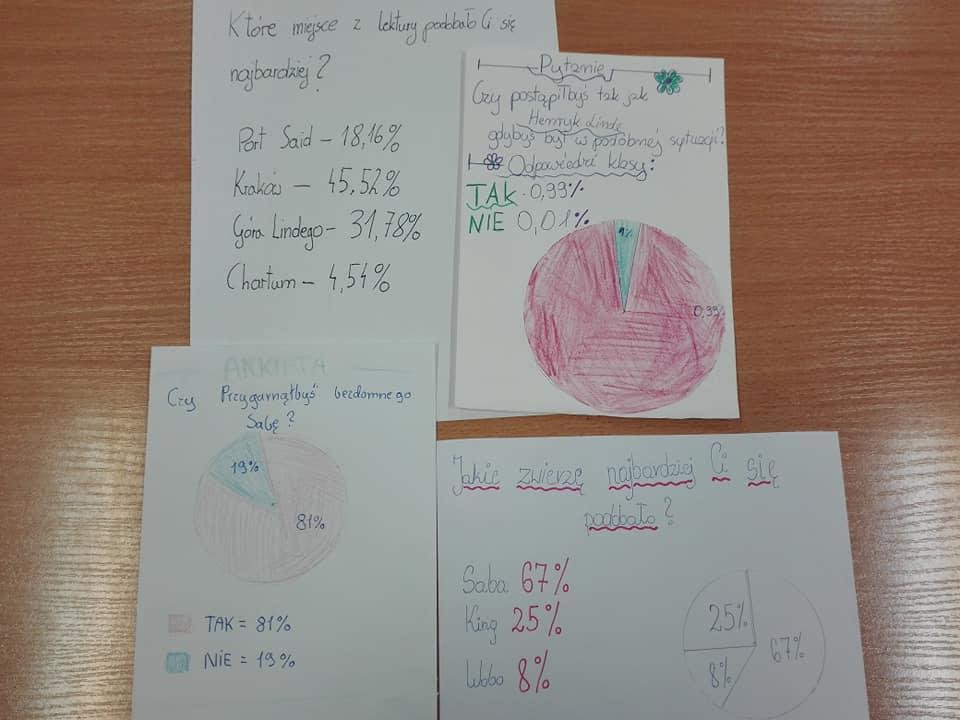 Które miejsce z lektury podobało Ci się
najbardziej?
Port Said – 18,16%
Kraków – 45,52%
Góra Lindego – 31,78%
Chartum – 4,54%
Pytanie
Czy postąpiłbyś tak jak
Henryk Linde
gdybyś był w podobnej sytuacji?
Odpowiedzi klasy:
TAK 0,99%
NIE 0,01%
1%
0,99%
ANKIETA
Czy Przygarnąłbyś bezdomnego
Sabę?
19%
81%
TAK = 81%
NIE = 19%
Jakie zwierzę najbardziej Ci się
podobało?
Saba 67%
King 25%
Wobo 8%
25%
67%
8%